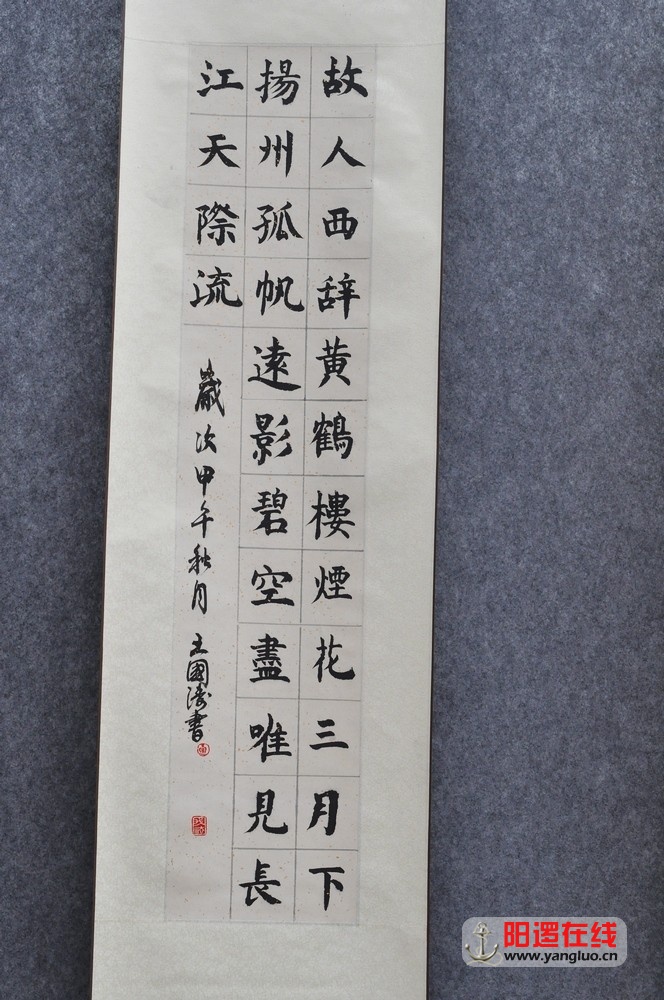 故人西辞黄鶴樓煙花三月下
揚州孤帆遠影碧空盡唯見長
江天際流
歲次甲午秋月 王國濤書
阳逻在线
www.yangluo.cn